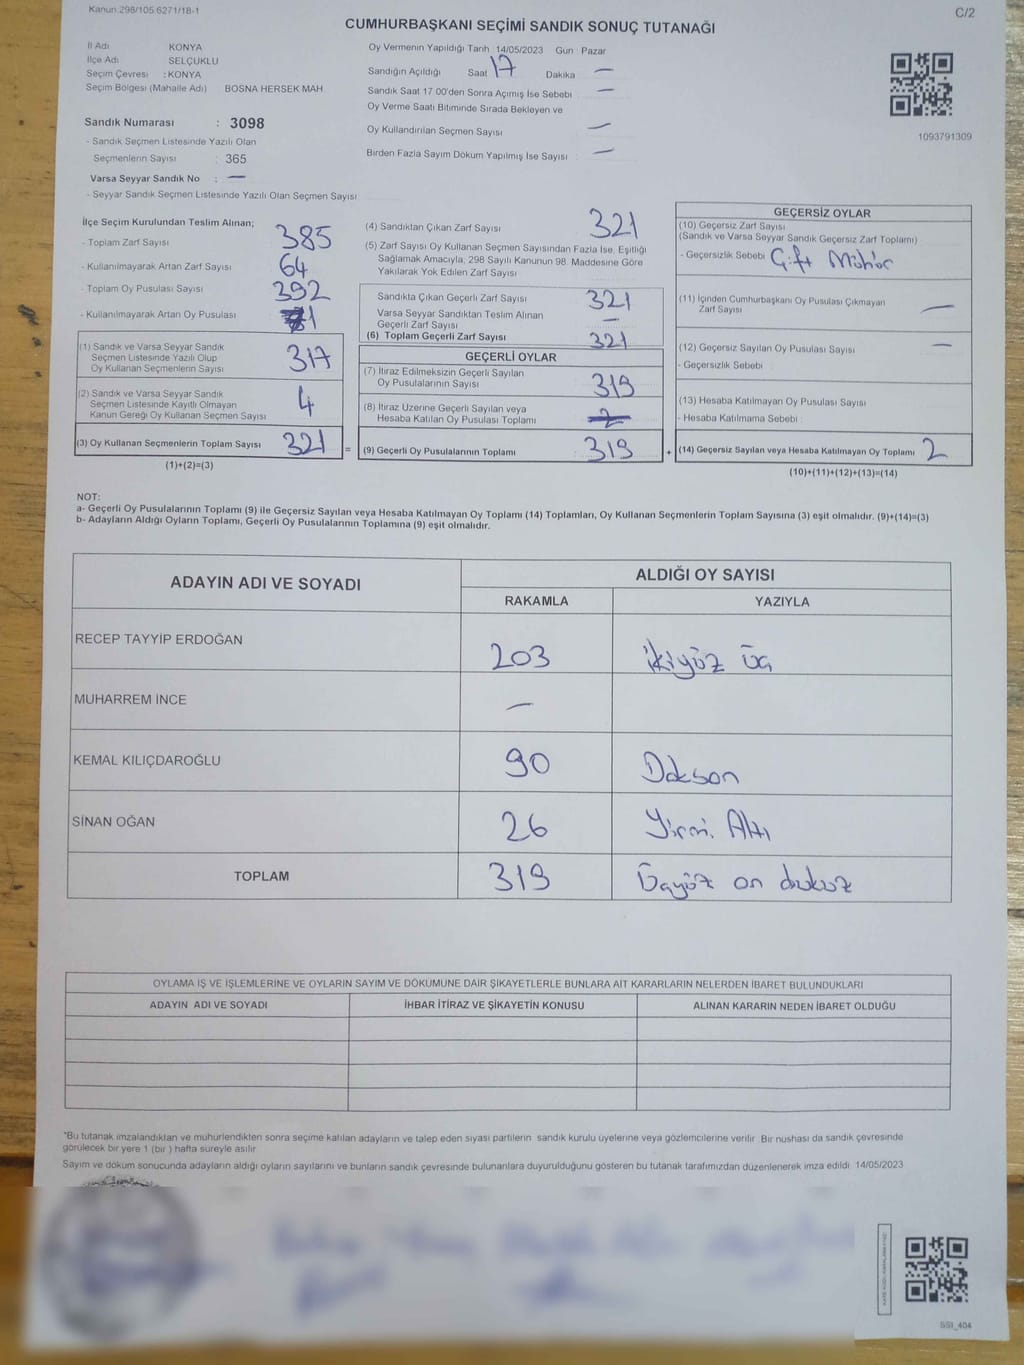 Kanun 298/105 6271/18-1
C/2
CUMHURBAŞKANI SEÇİMİ SANDIK SONUÇ TUTANAĞI
İl Adı KONYA
İlçe Adı SELÇUKLU
Seçim Çevresi : KONYA
Seçim Bölgesi (Mahalle Adı) BOSNA HERSEK MAH
Sandık Numarası : 3098
- Sandık Seçmen Listesinde Yazılı Olan
Seçmenlerin Sayısı : 365
Varsa Seyyar Sandık No : —
- Seyyar Sandık Seçmen Listesinde Yazılı Olan Seçmen Sayısı
Oy Vermenin Yapıldığı Tarih : 14/05/2023 Gün : Pazar
Sandığın Açıldığı Saat 17 Dakika —
Sandık Saat 17 00'den Sonra Açımış İse Sebebi —
Oy Verme Saati Bitiminde Sırada Bekleyen ve
Oy Kullandırılan Seçmen Sayısı —
Birden Fazla Sayım Döküm Yapılmış İse Sayısı —
1093791309
İlçe Seçim Kurulundan Teslim Alınan;
- Toplam Zarf Sayısı 385
- Kullanılmayarak Artan Zarf Sayısı 64
- Toplam Oy Pusulası Sayısı 392
- Kullanılmayarak Artan Oy Pusulası 71
(1) Sandık ve Varsa Seyyar Sandık
Seçmen Listesinde Yazılı Olup
Oy Kullanan Seçmenlerin Sayısı 317
(2) Sandık ve Varsa Seyyar Sandık
Seçmen Listesinde Kayıtlı Olmayan
Kanun Gereği Oy Kullanan Seçmen Sayısı 4
(3) Oy Kullanan Seçmenlerin Toplam Sayısı 321 =
(1)+(2)=(3)
(4) Sandıktan Çıkan Zarf Sayısı 321
(5) Zarf Sayısı Oy Kullanan Seçmen Sayısından Fazla İse, Eşitliği
Sağlamak Amacıyla, 298 Sayılı Kanunun 98. Maddesine Göre
Yakılarak Yok Edilen Zarf Sayısı
Sandıkta Çıkan Geçerli Zarf Sayısı 321
Varsa Seyyar Sandıktan Teslim Alınan
Geçerli Zarf Sayısı —
(6) Toplam Geçerli Zarf Sayısı 321
GEÇERLİ OYLAR
(7) İtiraz Edilmeksizin Geçerli Sayılan
Oy Pusulalarının Sayısı 319
(8) İtiraz Üzerine Geçerli Sayılan veya
Hesaba Katılan Oy Pusulası Toplamı 2
(9) Geçerli Oy Pusulalarının Toplamı : 319 +
GEÇERSİZ OYLAR
(10) Geçersiz Zarf Sayısı
(Sandık ve Varsa Seyyar Sandık Geçersiz Zarf Toplamı)
- Geçersizlik Sebebi Çift Mühür
(11) İçinden Cumhurbaşkanı Oy Pusulası Çıkmayan
Zarf Sayısı —
(12) Geçersiz Sayılan Oy Pusulası Sayısı —
- Geçersizlik Sebebi
(13) Hesaba Katılmayan Oy Pusulası Sayısı
- Hesaba Katılmama Sebebi :
(14) Geçersiz Sayılan veya Hesaba Katılmayan Oy Toplamı 2
(10)+(11)+(12)+(13)=(14)
NOT:
a- Geçerli Oy Pusulalarının Toplamı (9) ile Geçersiz Sayılan veya Hesaba Katılmayan Oy Toplamı (14) Toplamları, Oy Kullanan Seçmenlerin Toplam Sayısına (3) eşit olmalıdır. (9)+(14)=(3)
b- Adayların Aldığı Oyların Toplamı, Geçerli Oy Pusulalarının Toplamına (9) eşit olmalıdır.
ADAYIN ADI VE SOYADI
ALDIĞI OY SAYISI
RAKAMLA YAZIYLA
RECEP TAYYİP ERDOĞAN 203 ikiyüz üç
MUHARREM İNCE —
KEMAL KILIÇDAROĞLU 90 Doksan
SİNAN OĞAN 26 Yirmi Altı
TOPLAM 319 Üçyüz on dokuz
OYLAMA İŞ VE İŞLEMLERİNE VE OYLARIN SAYIM VE DÖKÜMÜNE DAİR ŞİKAYETLERLE BUNLARA AİT KARARLARIN NELERDEN İBARET BULUNDUKLARI
ADAYIN ADI VE SOYADI İHBAR İTİRAZ VE ŞİKAYETİN KONUSU ALINAN KARARIN NEDEN İBARET OLDUĞU
*Bu tutanak imzalandıktan ve mühürlendikten sonra seçime katılan adayların ve talep eden siyasi partilerin sandık kurulu üyelerine veya gözlemcilerine verilir. Bir nüshası da sandık çevresinde
görülecek bir yere 1 (bir ) hafta süreyle asılır.
Sayım ve döküm sonucunda adayların aldığı oyların sayılarını ve bunların sandık çevresinde bulunanlara duyurulduğunu gösteren bu tutanak tarafımızdan düzenlenerek imza edildi. 14/05/2023
SSI_404